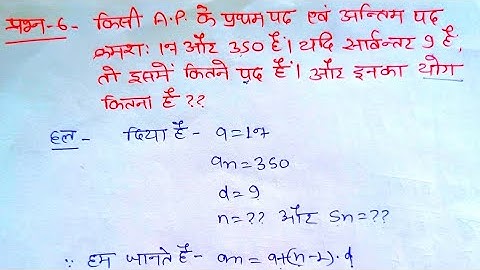 प्रश्न-6- किसी A.P. के प्रथम पद एवं अन्तिम पद
क्रमशः 17 और 350 हैं। यदि सार्वन्तर 9 है,
तो इसमें कितने पद हैं। और इनका योग
कितना है ??
हल- दिया है- a=17
an=350
d=9
n=?? और Sn=??
∵ हम जानते हैं- an=a+(n-1).d